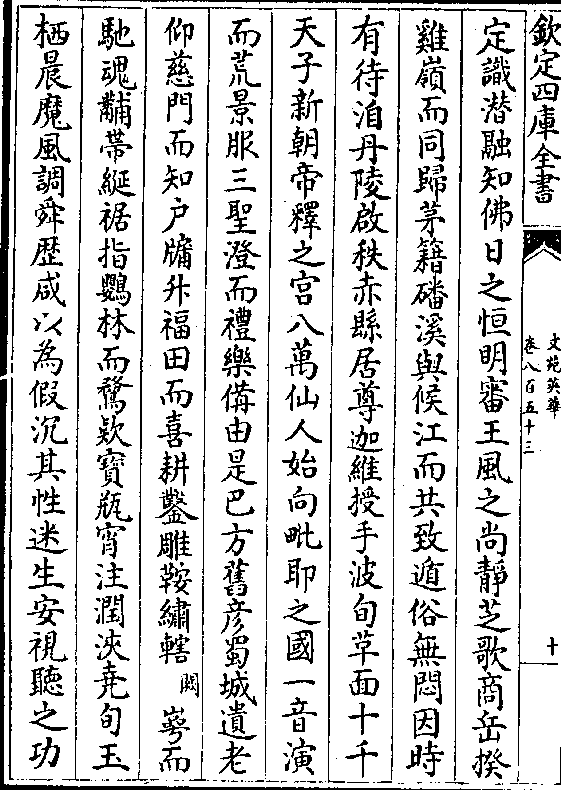 欽定四庫全書
文苑英華
卷八百五十三
十
定識潜融知佛日之恒明審王風之尚靜芝歌商岳揆
雞嶺而同歸茅籍磻溪與候江而共致遁俗無悶因時
有待洎丹陵啟秩赤縣居尊迦維授手波旬草面十千
天子新朝帝釋之宮八萬仙人始向毗耶之國一音演
而荒景服三聖澄而禮樂備由是巴方舊彦蜀城遺老
仰慈門而知户牖升福田而喜耕鑿雕鞍繡轄闕蕚而
馳魂黼帶縰裾指鸚林而騖欵寳瓶宵注潤浹堯旬玉
栖晨魔風調舜歴咸以為假沉其性迷生安視聽之功